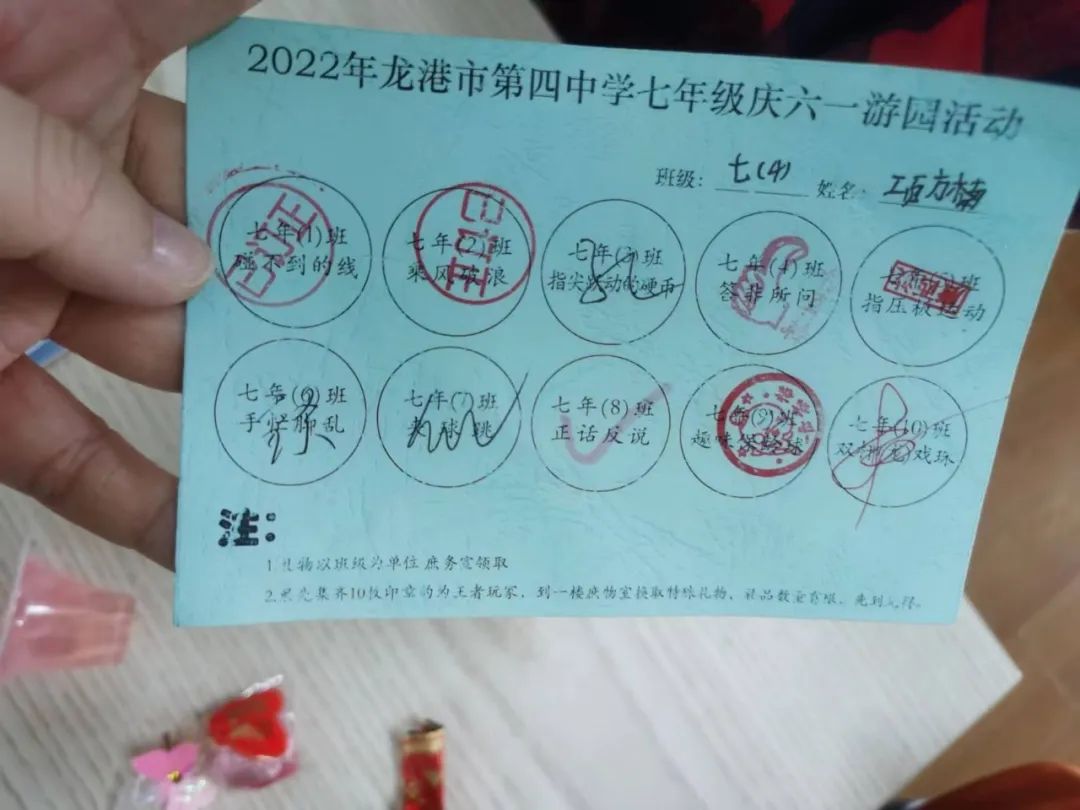 2022年龙港市第四中学七年级庆六一游园活动
班级：七(4) 姓名：项方楠
七年(1)班
碰不到的线
七年(2)班
乘风破浪
七年(3)班
指尖跃动的硬币
七年(4)班
答非所问
七年(5)班
指压板运动
七年(6)班
手忙脚乱
七年(7)班
球跳
七年(8)班
正话反说
七年(9)班
趣味保龄球
七年(10)班
双龙戏珠
注：
1.礼物以班级为单位庶务室领取
2.率先集齐10枚印章的为王者玩家，到一楼庶务室换取特殊礼物，礼品数量有限，先到先得。